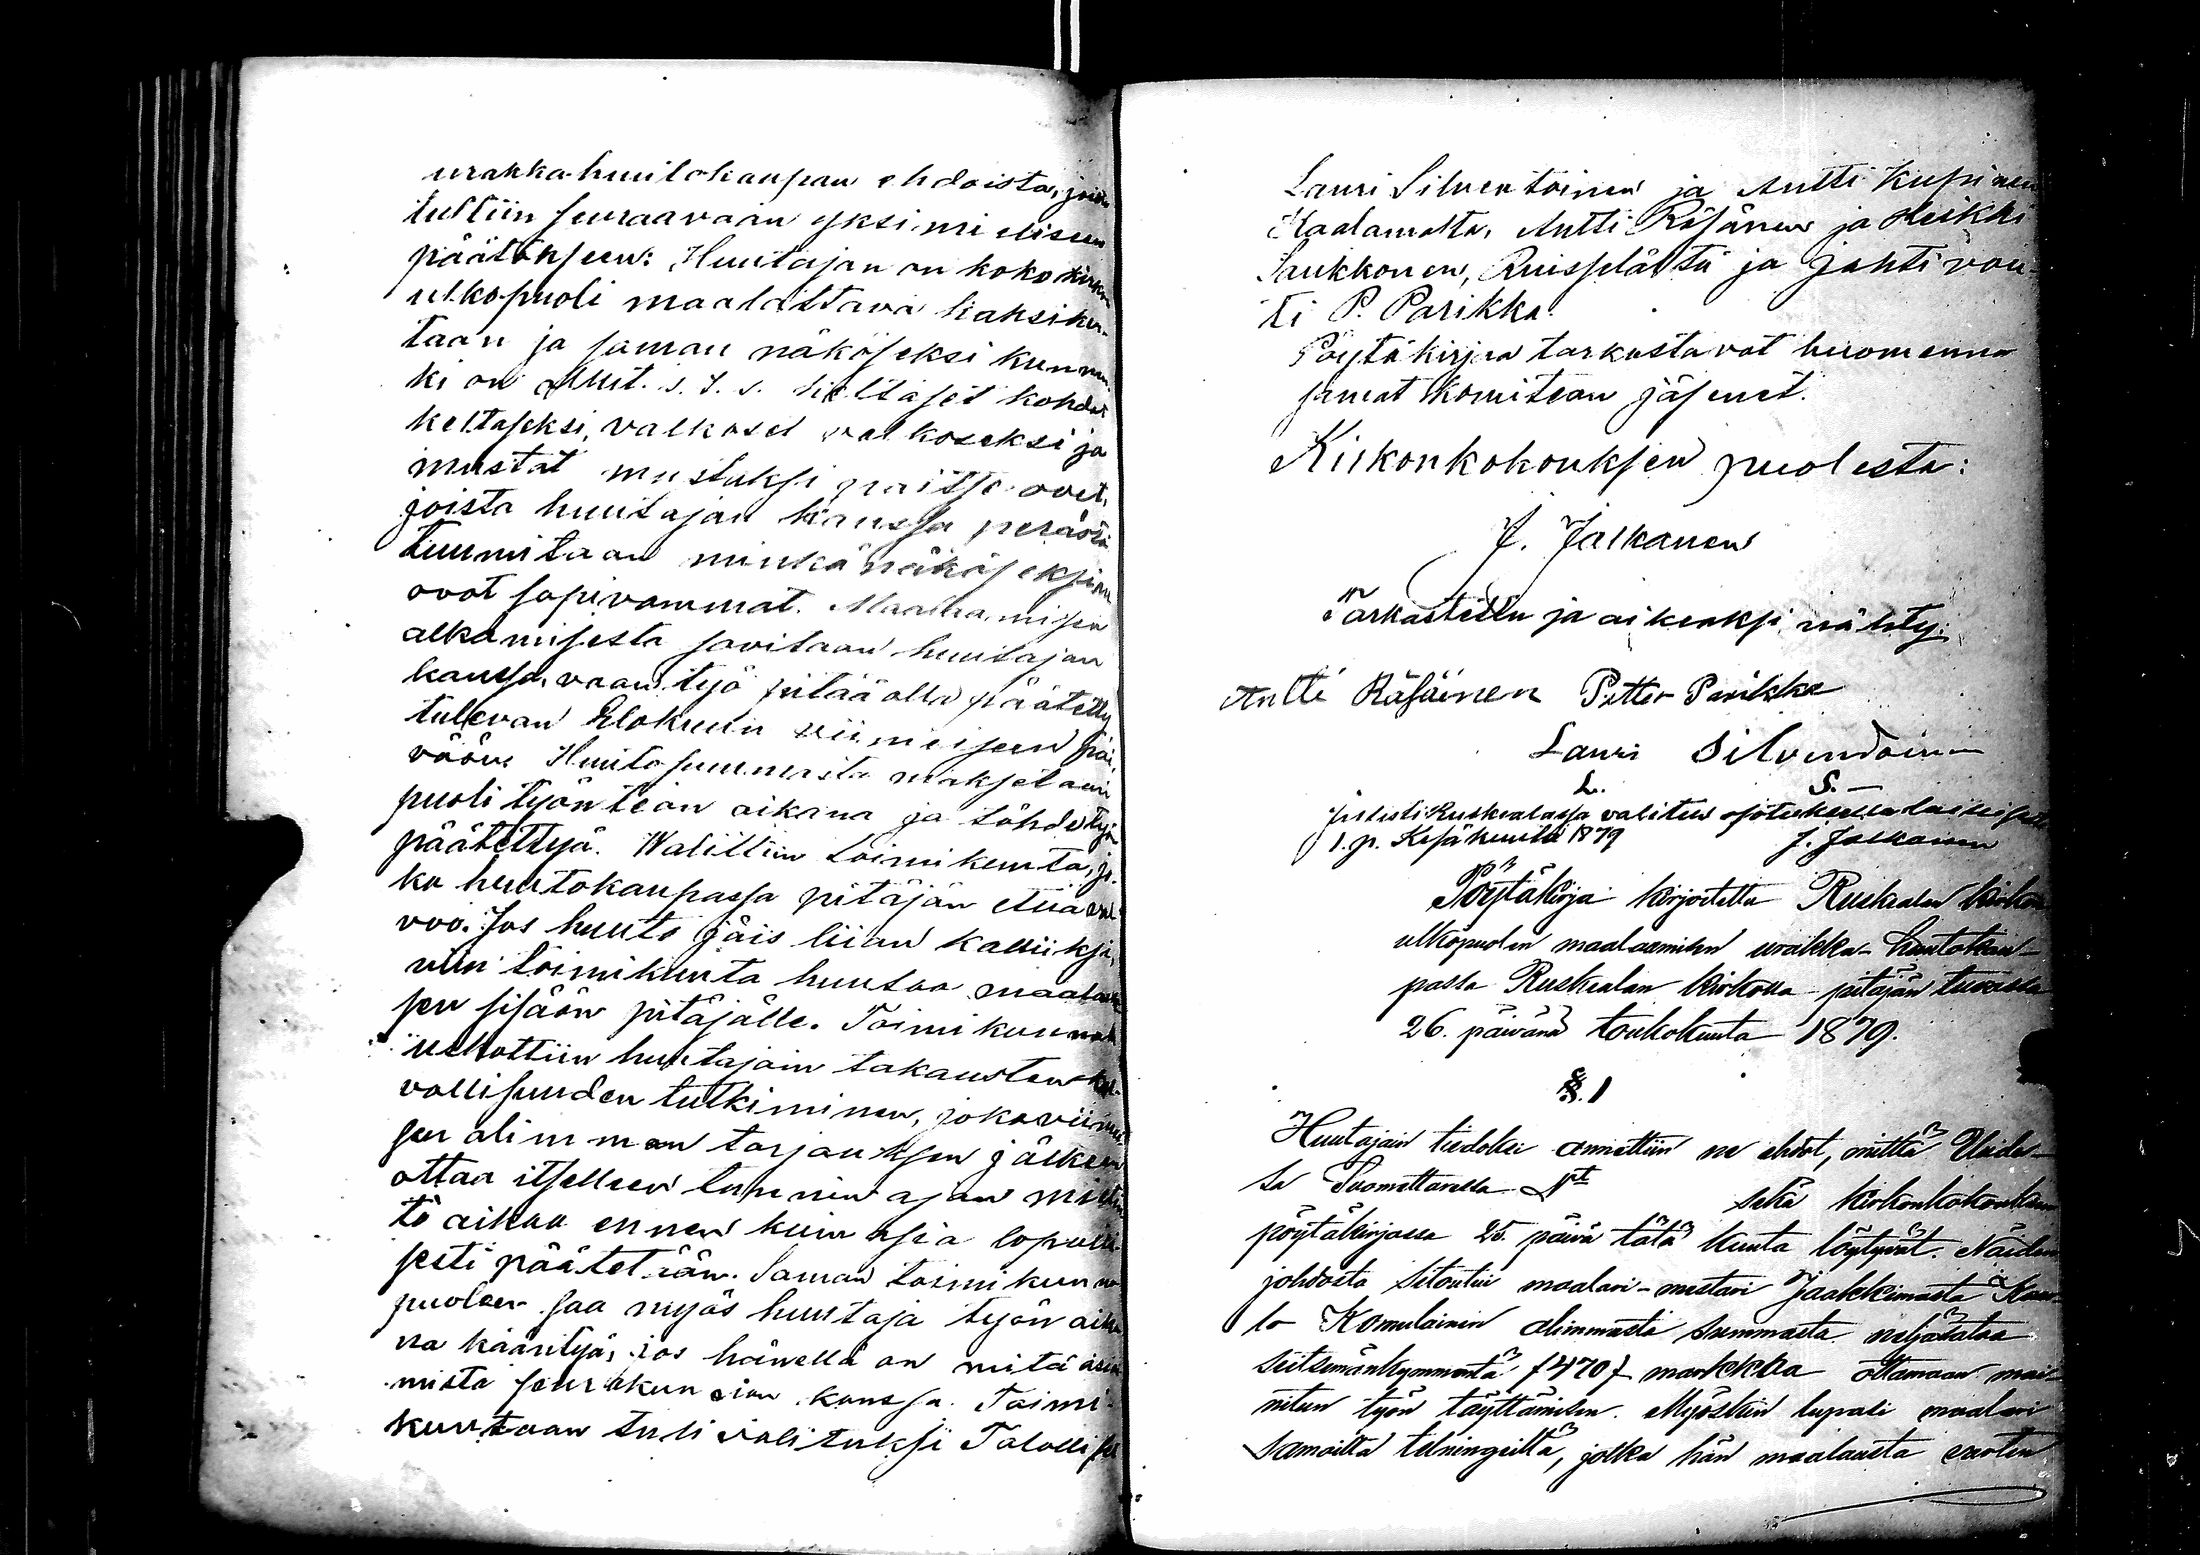 urakka-huutokaupan ehdoista, joissa
tultiin seuraavaan yksimieliseen
päätökseen: Huutajan on koko kirkon
ulkopuoli maalattava kaksiker-
taan ja saman näköseksi kun nyt-
ki on s. t. s. keltaset kohdat
keltaseksi, valkoset valkoseksi ja
mustat mustaksi paitse ovet,
joista huutajan kanssa perästä
tuumitaan minkä näköseksi ne
ovat sopivammat. Maalaamisen
alkamisesta sovitaan huutajan
kanssa, vaan työ pitää olla päätetty
tulevan Elokuun viimeiseen päi-
vään. Huutosummasta maksetaan
puoli työn teon aikana ja tähde työn
päätettyä. Walittiin toimikunta, jo-
ka huutokaupassa pitäjän etua val-
voo. Jos huuto jäis liian kalliiksi,
niin toimikunta huutaa maalauk-
sen sisään pitäjälle. Toimikunnalle
uskottiin huutajain takausten kel-
vollisuuden tutkiminen, joka viimei-
sen alimman tarjouksen jälkeen
ottaa itselleen tunnin ajan mietin-
tö aikaa ennen kuin asia lopulli-
sesti päätetään. Saman toimikunnan
puoleen saa myös huutaja työn aika-
na kääntyä, jos hänellä on mitä asioi-
mista seurakunnan kanssa. Toimi-
kuntaan tuli valituksi Talolliset
Lauri Silventoinen ja Antti Kupiainen
Haalamolta, Antti Räsänen ja Heikki
Saukkonen, Ruisselältä ja Jahtivou-
ti P. Parikka.
Pöytäkirjaa tarkastavat huomenna
samat komitean jäsenet.
Kirkonkokouksen puolesta:
J. Jalkanen
Tarkastettu ja oikeaksi nähty:
Antti Räsäinen Petter Parikka
Lauri Silvendoinen
L. S.
Julisti Ruskealassa valitus osotuksella
1. p. Kesäkuuta 1879 J. Jalkanen
Pöytäkirja kirjoitettu Ruskealan kirkon
ulkopuolen maalaamisen urakka-huutokau-
passa Ruskealan kirkolla pitäjän tuvassa
26. päivänä toukokuuta 1879.
§. 1
Huutajain tiedoksi annettiin ne ehdot, mitkä Uudes-
sa Suomettaressa N:o sekä kirkonkokouksen
pöytäkirjassa 25. päivä tätä kuuta löytyvät. Näiden
johdosta sitoutui maalari-mestari Jaakkimasta
Komulainen alimmasta summasta neljäsataa
seitsemänkymmentä /470/ markkaa ottamaan mai-
nitun työn täyttämisen. Myöskin lupasi maalari
samoilla telningeillä, jolka hän maalausta varten